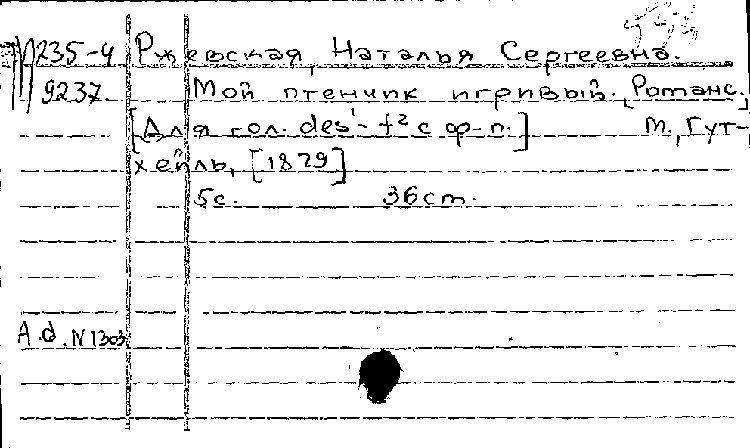 235-4 Ржевская, Наталья Сергеевна.
9237. Мой птенчик игривый. [Романс.]
[Для гол. des¹-f² с ф-п.] М., Гут-
хейль, [1879]
5с. 36см.
A.d. N1303